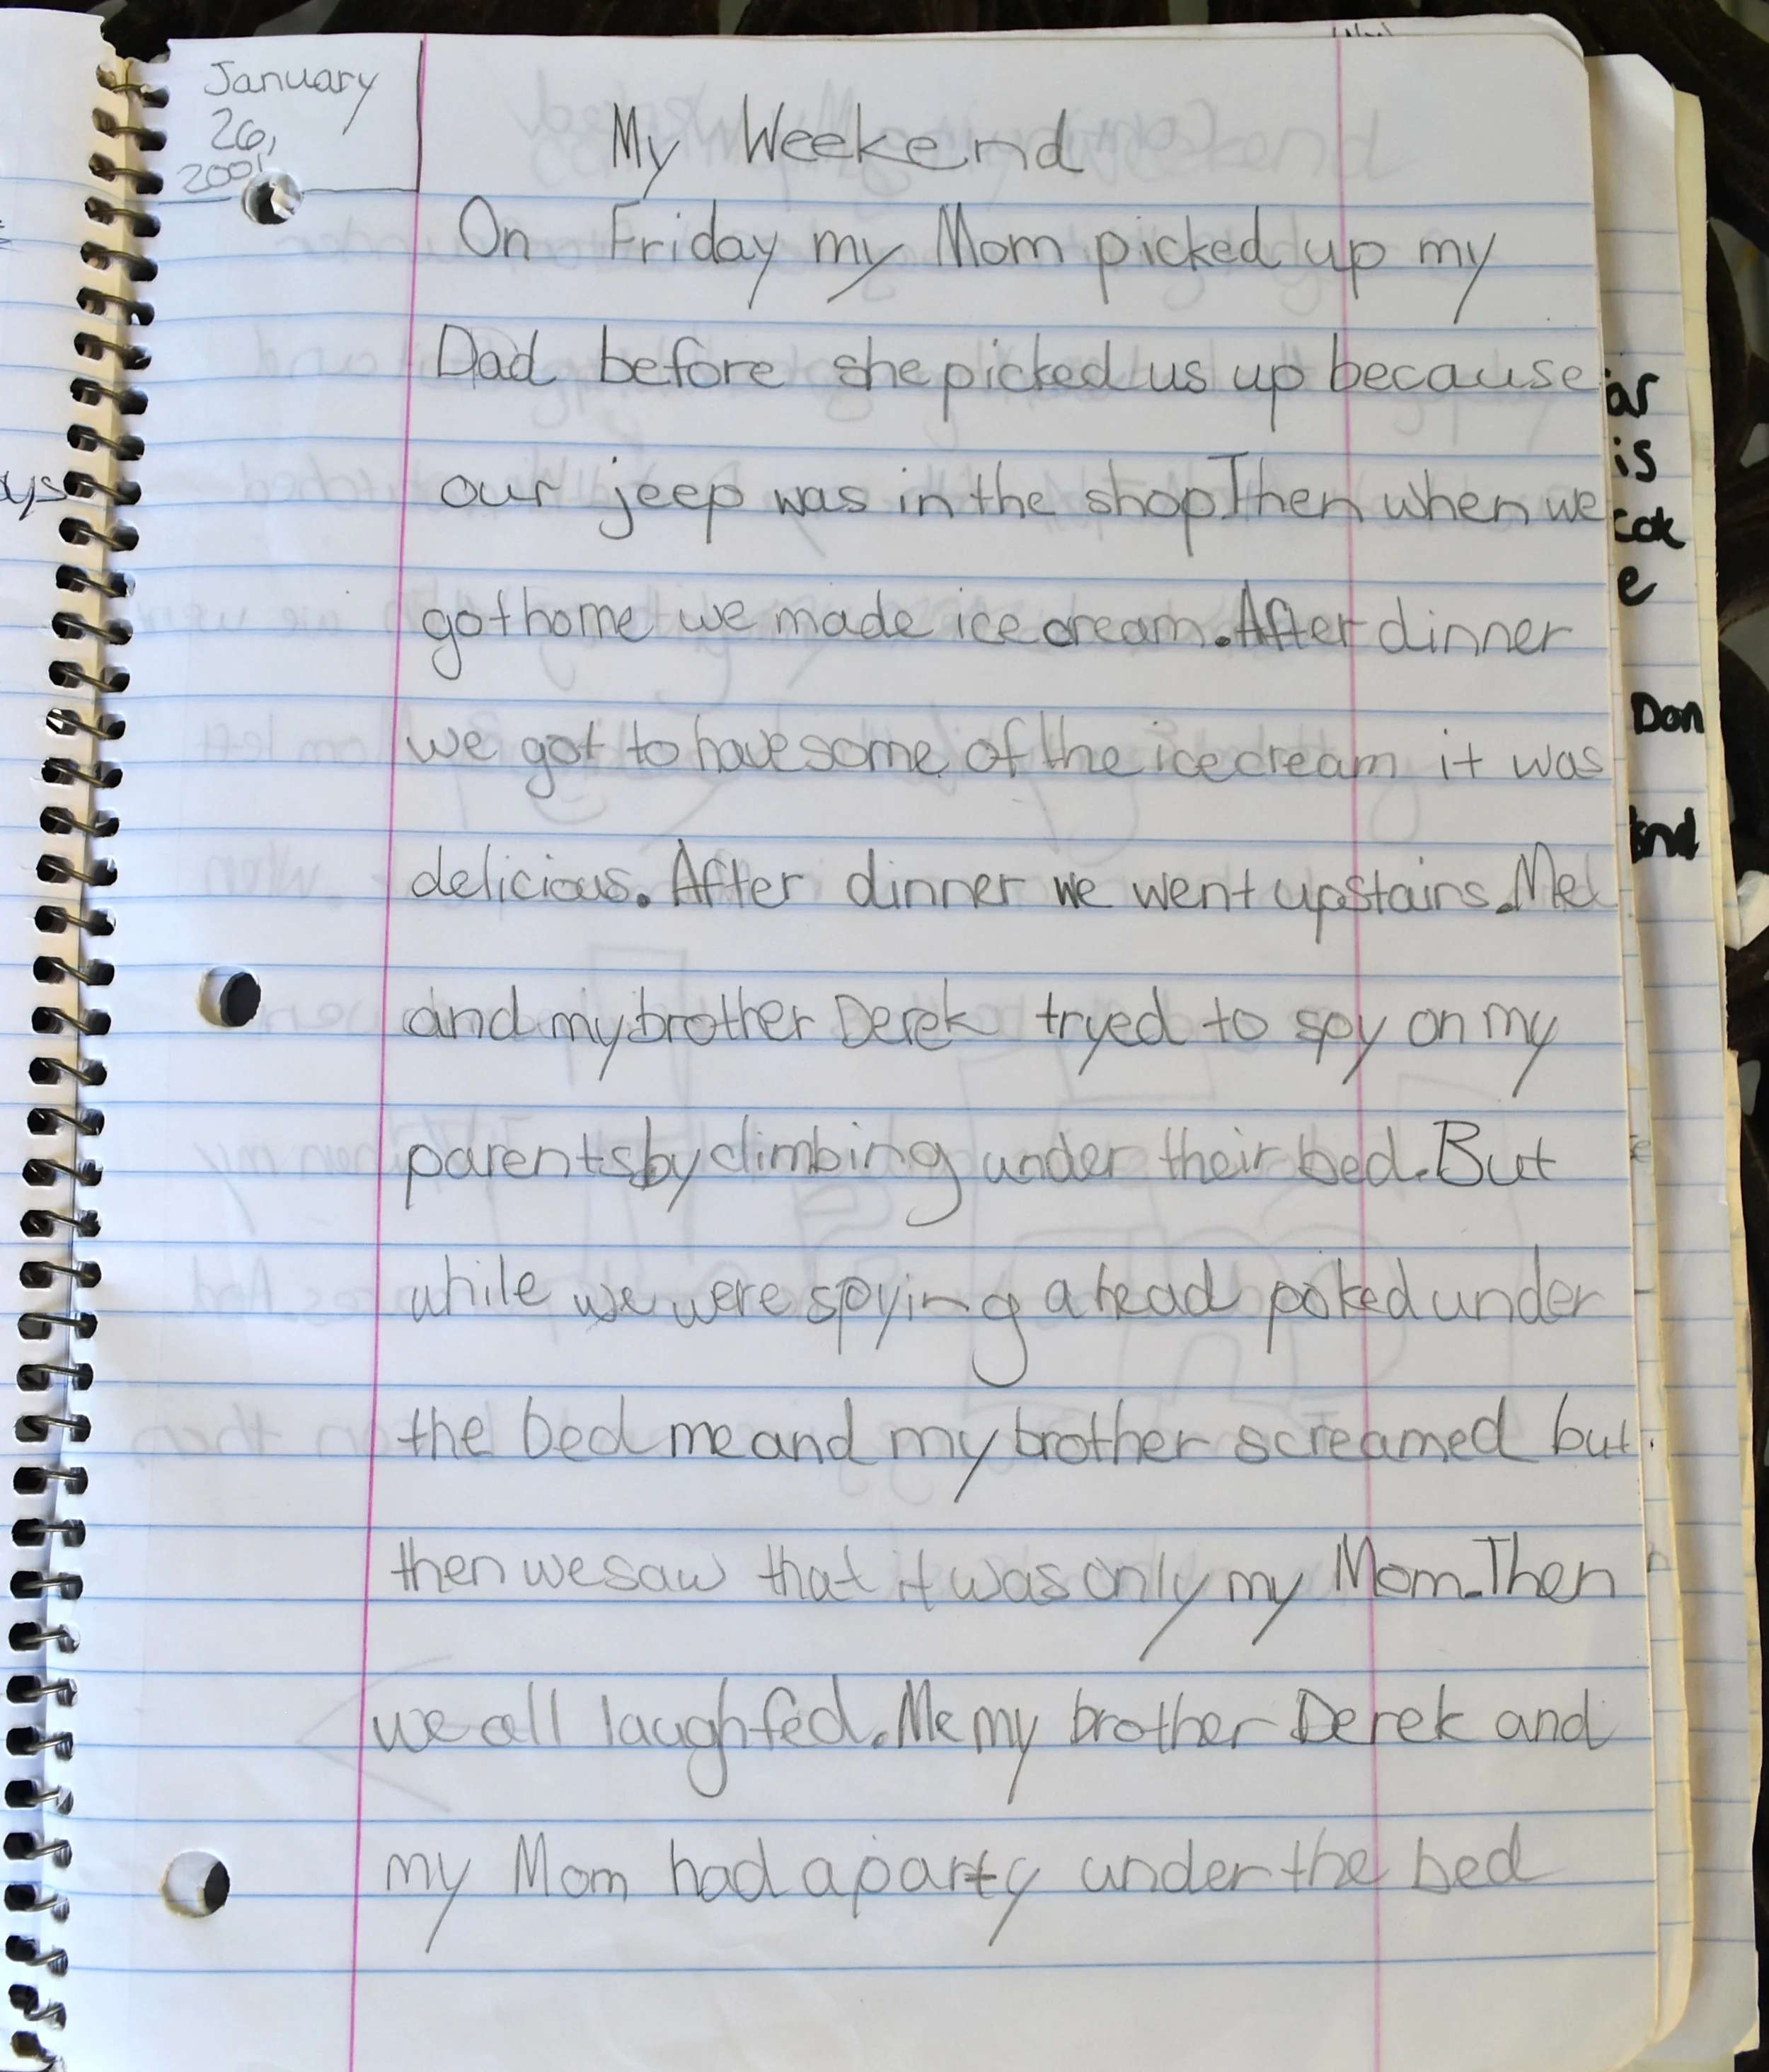 January
26,
2001
My Weekend
On Friday my Mom picked up my
Dad before she picked us up because
our jeep was in the shop. Then when we
got home we made ice cream. After dinner
we got to have some of the ice cream it was
delicious. After dinner we went upstairs. Me
and my brother Derek tryed to spy on my
parents by climbing under their bed. But
while we were spying a head poked under
the bed me and my brother screamed but
then we saw that it was only my Mom. Then
we all laughfed. Me my brother Derek and
my Mom had a party under the bed
ys
ar
is
e
Don